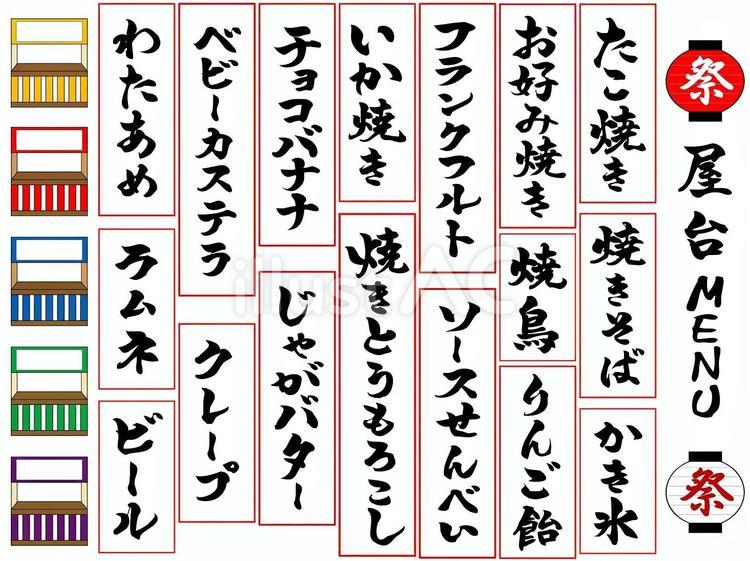 祭
屋台MENU
祭
たこ焼き
焼きそば
かき氷
お好み焼き
焼鳥
りんご飴
フランクフルト
ソースせんべい
いか焼き
焼きとうもろこし
チョコバナナ
じゃがバター
ベビーカステラ
クレープ
わたあめ
ラムネ
ビール
illustAC